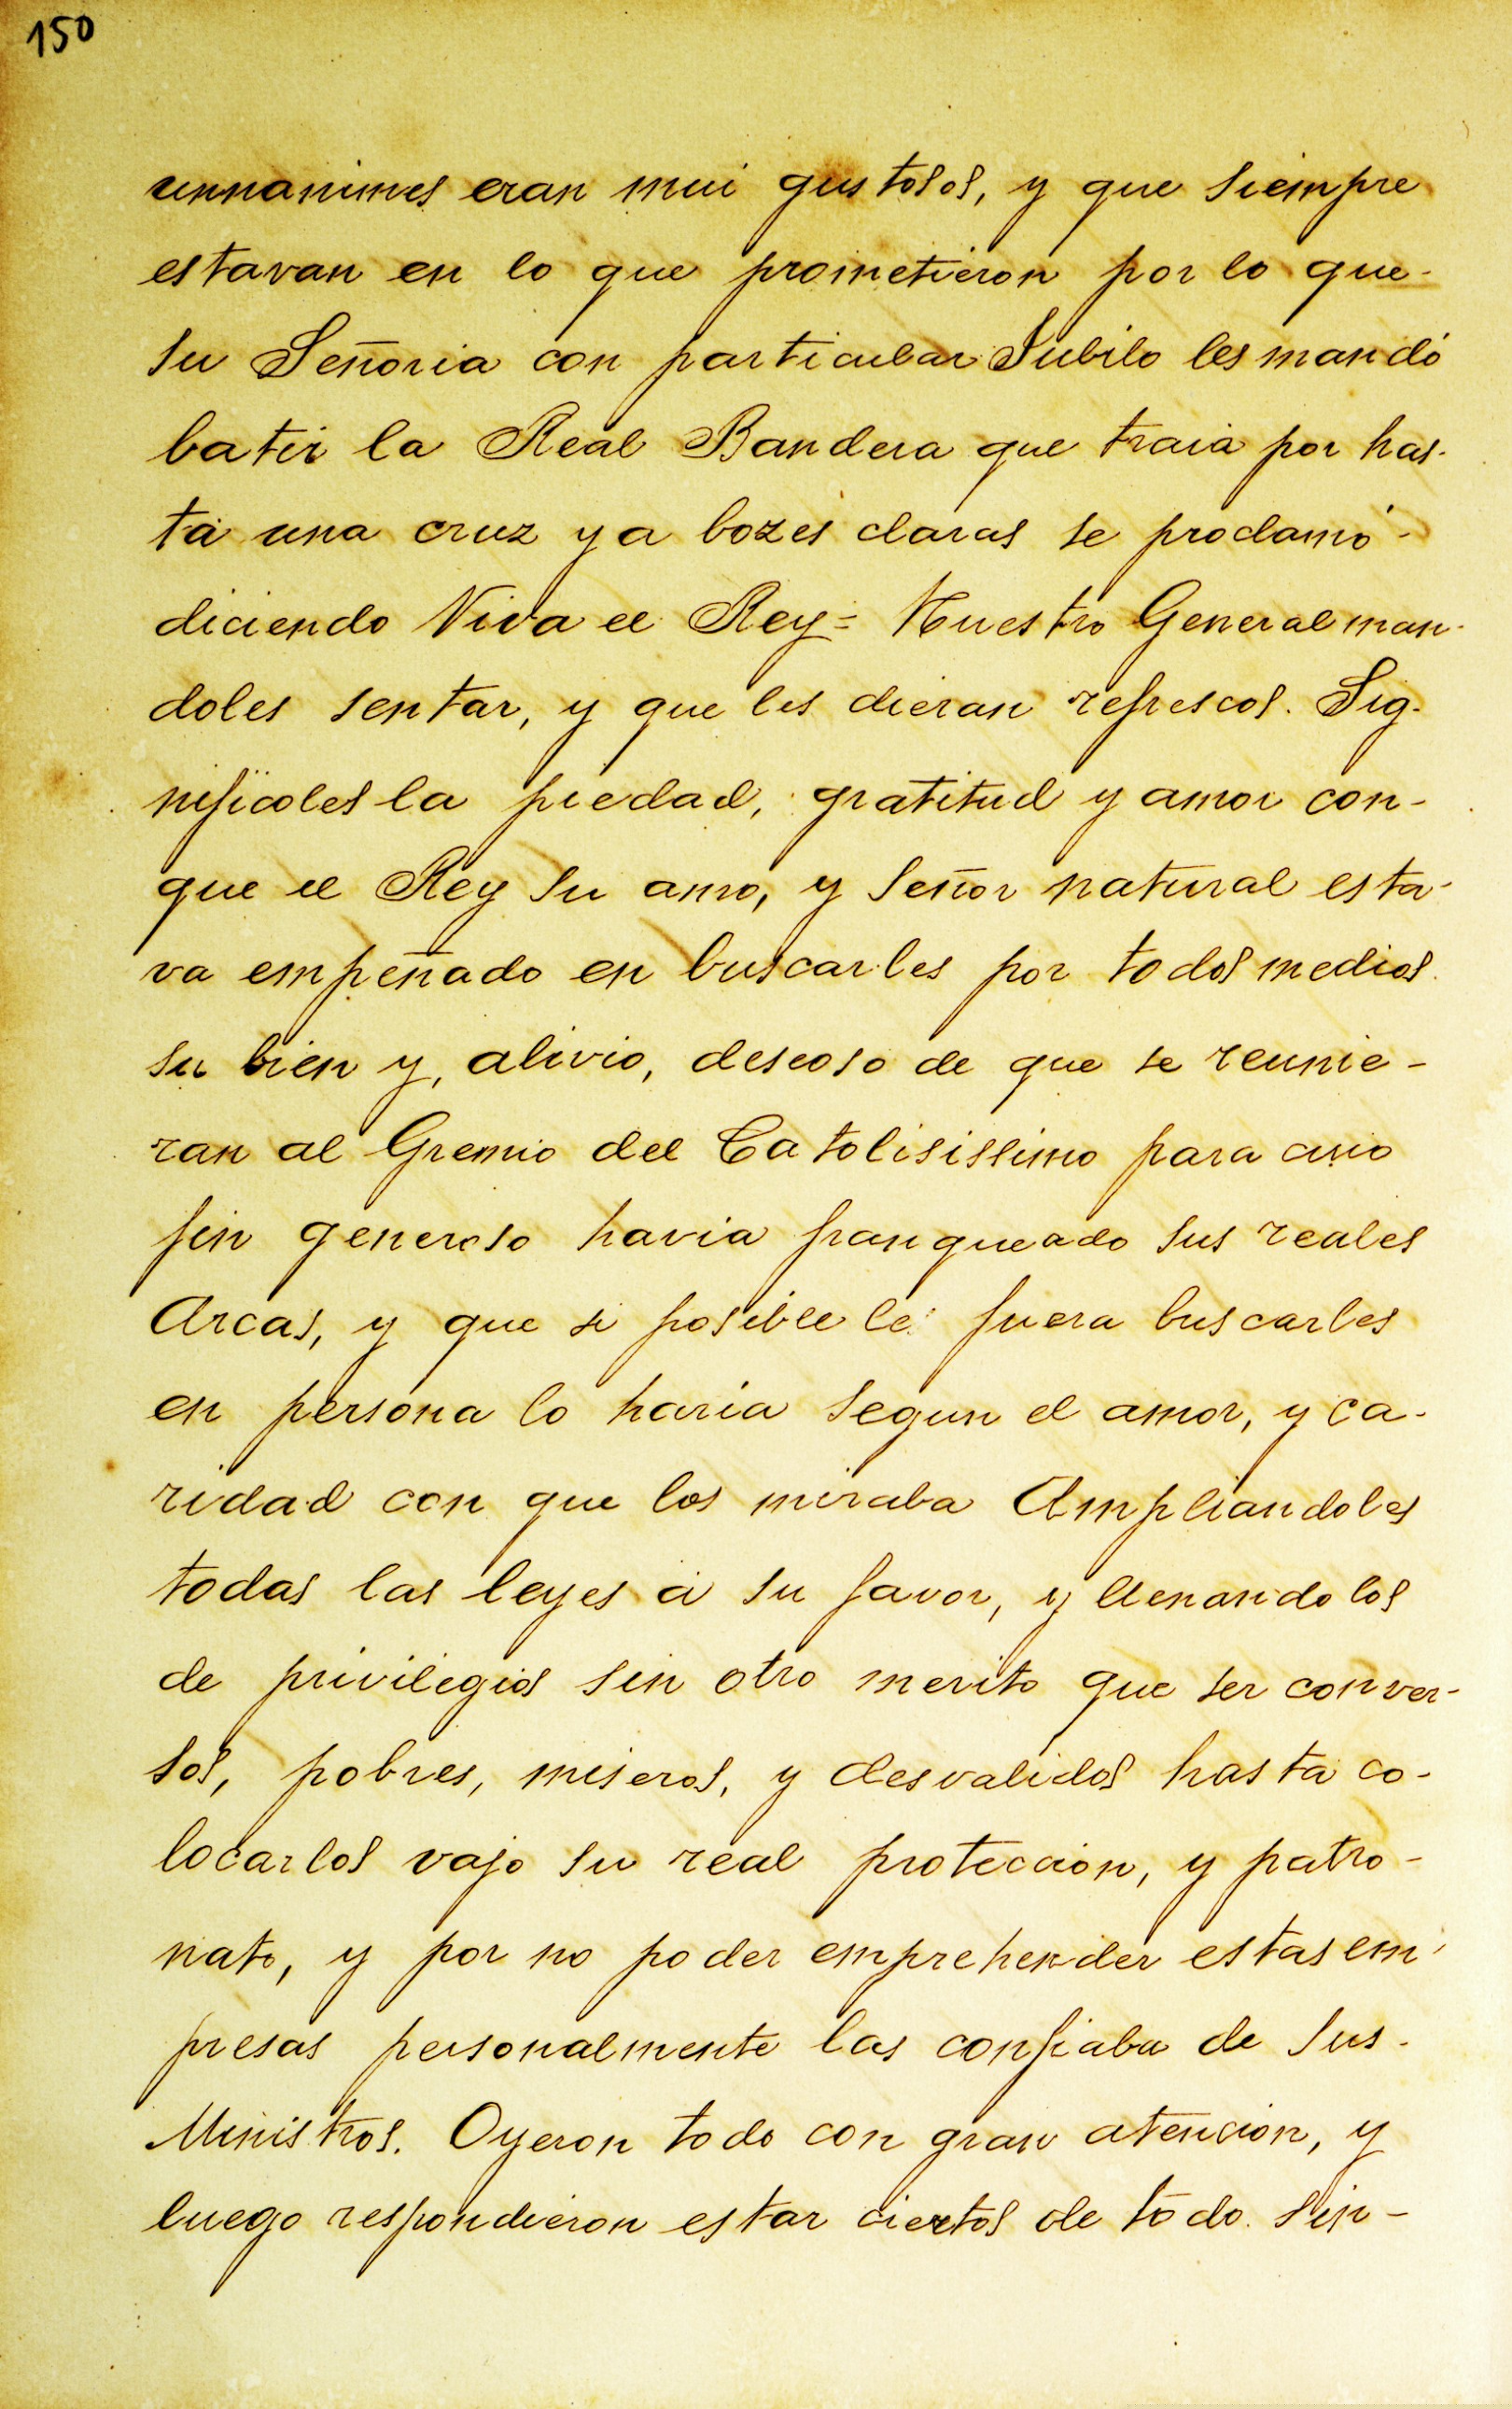 150
unnanimes eran mui gustosos, y que siempre
estavan en lo que prometieron por lo que-
su Señoria con particular Jubilo les mandó
batir la Real Bandera que traia por has-
ta una cruz y a bozes claras se proclamó-
diciendo Viva el Rey= Nuestro General man-
doles sentar, y que les dieran refrescos. Sig-
nificoles la piedad, gratitud y amor con-
que el Rey su amo, y señor natural esta-
va empeñado en buscarles por todos medios
su bien y, alivio, deseoso de que se reunie-
ran al Gremio del Catolisissimo para cuio
fin generoso havia franqueado sus reales
Arcas, y que si posible le fuera buscarles
en persona lo haria segun el amor, y ca-
ridad con que los miraba Ampliandoles
todas las leyes á su favor, y llenandolos
de privilegios sin otro merito que ser conver-
sos, pobres, miseros, y desvalidos hasta co-
locarlos vajo su real proteccion, y patro-
nato, y por no poder emprehender estas em-
presas personalmente las confiaba de sus-
Ministros. Oyeron todo con gran atencion, y
luego respondieron estar ciertos de todo. sin-